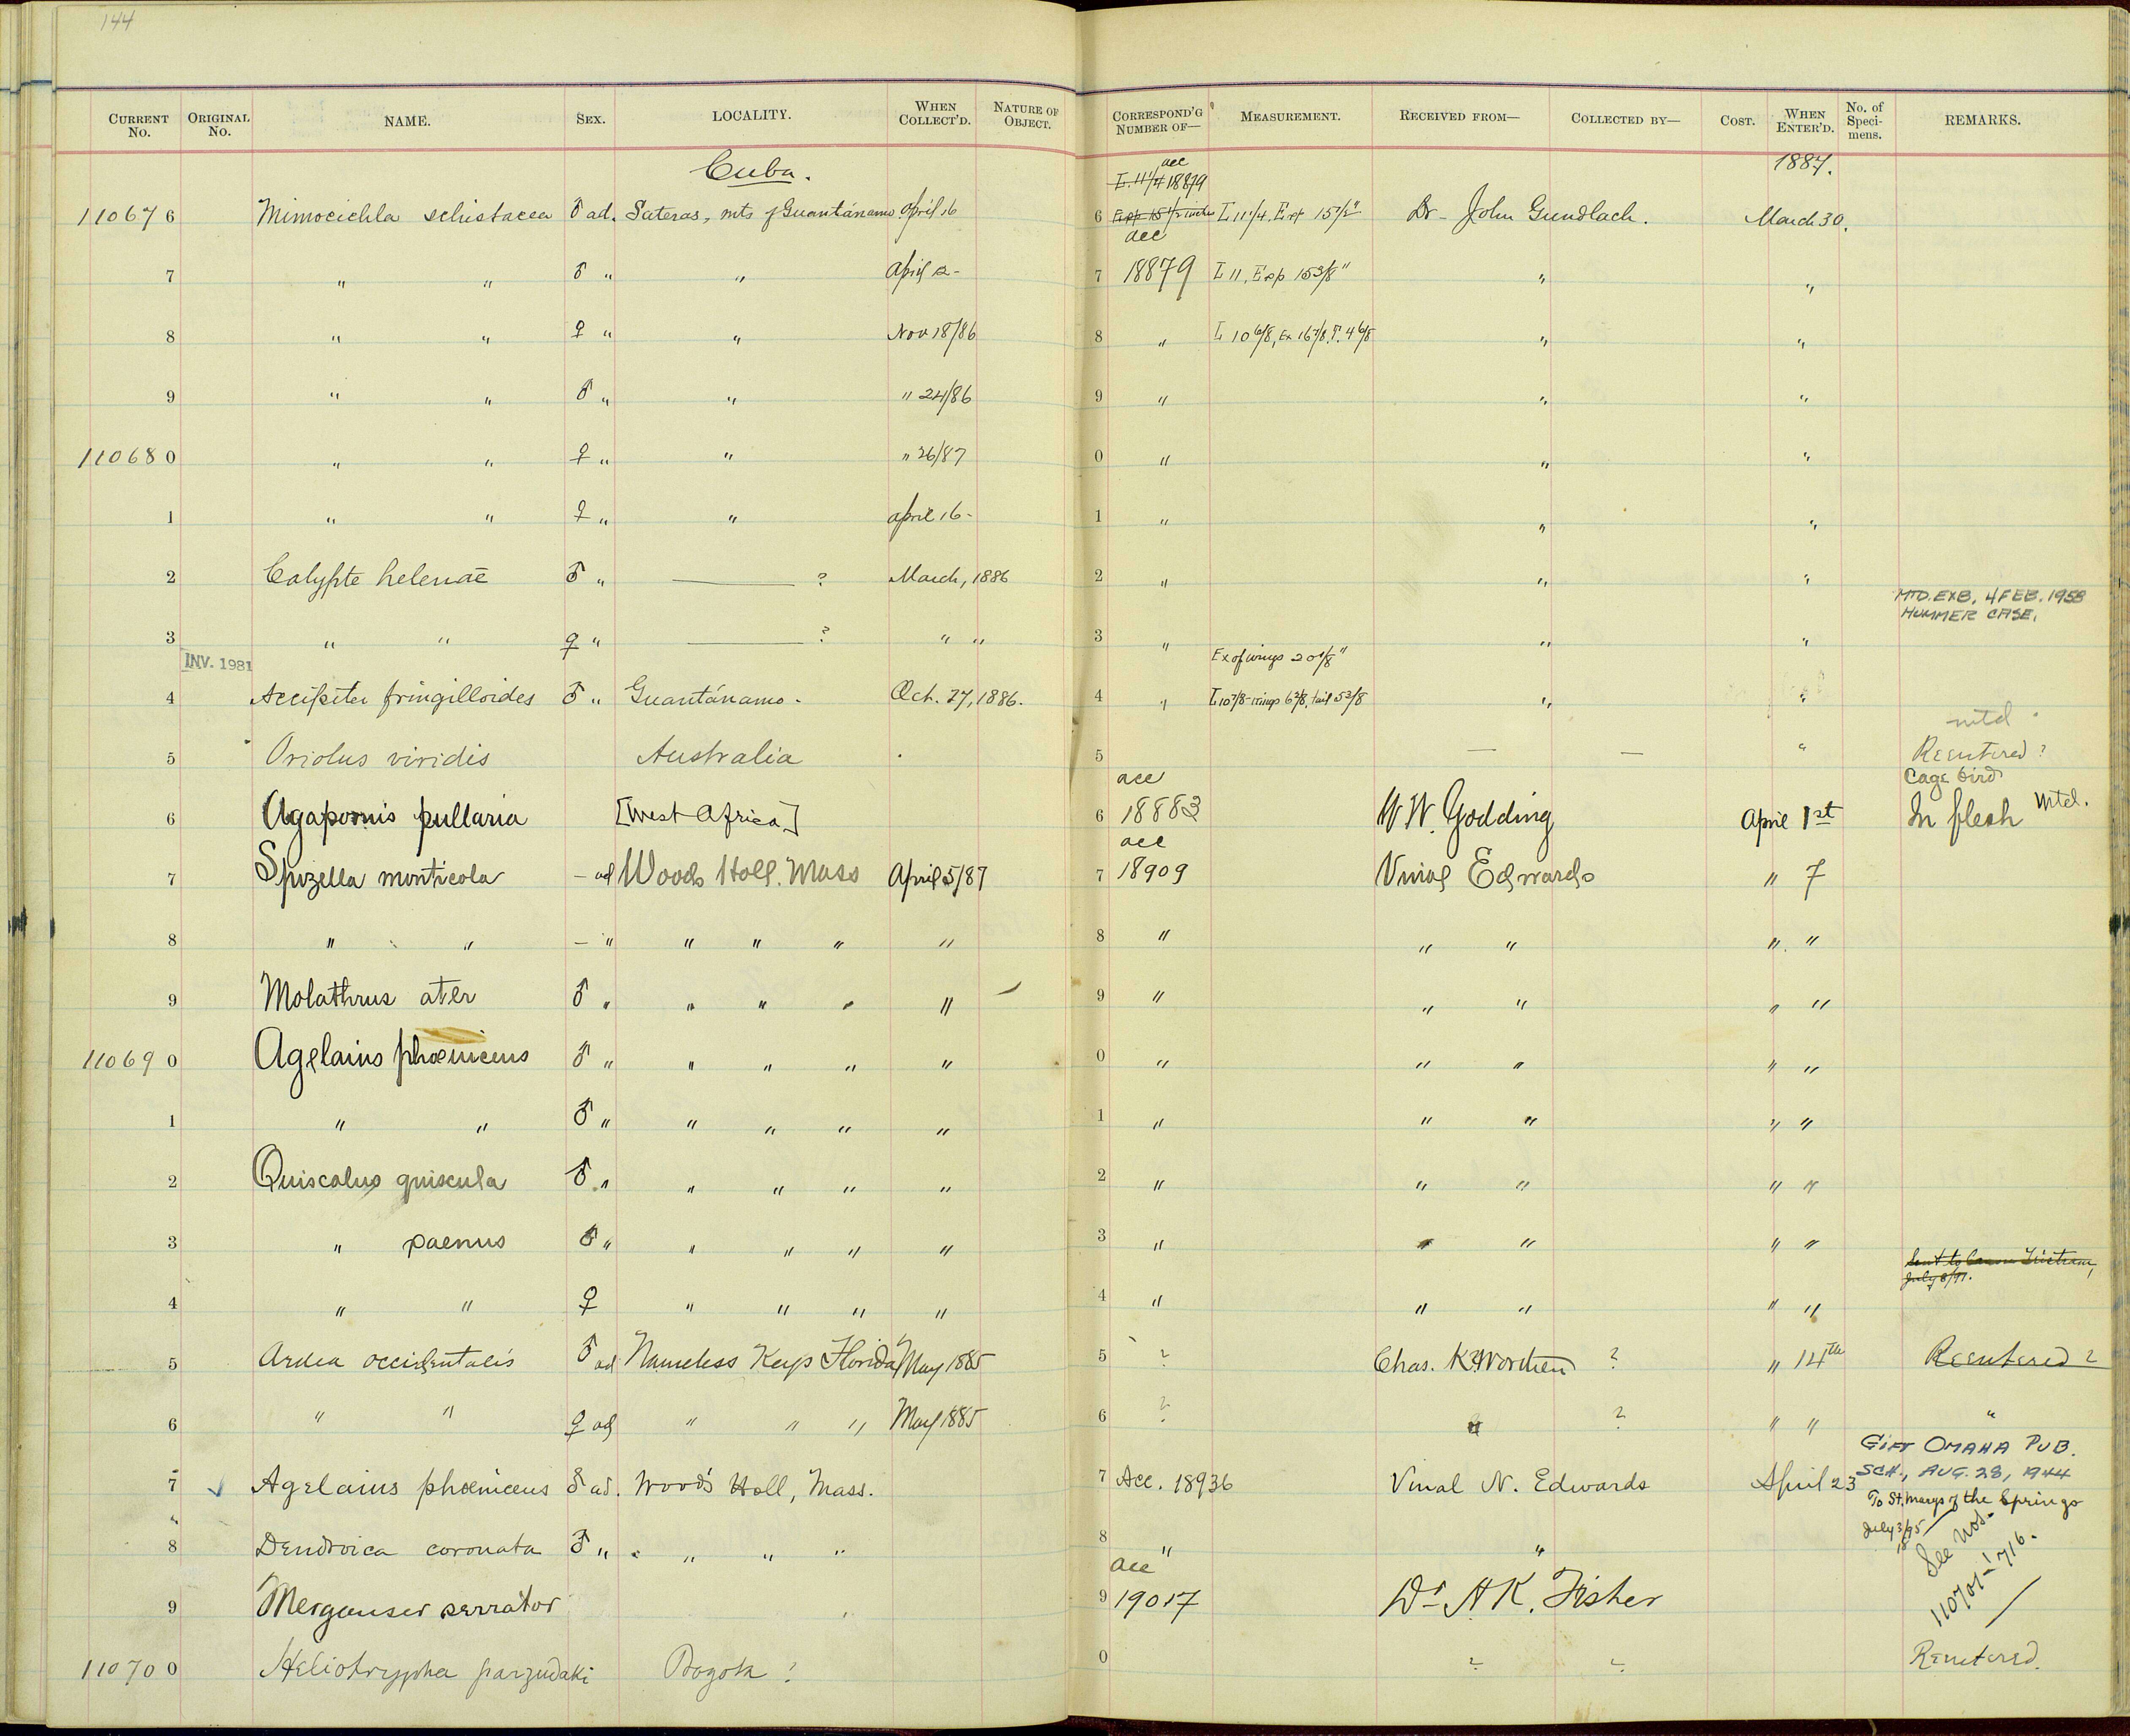 144
CURRENT No. ORIGINAL No. NAME. SEX. LOCALITY. WHEN COLLECT'D. NATURE OF OBJECT. CORRESPOND'G NUMBER OF— MEASUREMENT. RECEIVED FROM— COLLECTED BY— COST. WHEN ENTER'D. No. of Specimens. REMARKS.
Cuba. acc 1887.
L. 11 1/4 18879
110676 Mimocichla schistacea ♂ ad. mts of Guantánamo April 16 6 L 11 1/4, Exp 15 1/2" Dr. John Gundlach. March 30.
acc
7 " " ♂ " " April 12- 7 18879 L 11, Exp 15 3/8" " "
8 " " ♀ " " Nov 18/86 8 " L 10 6/8, Ex 16 7/8, T. 4 6/8 " "
9 " " ♂ " " " 24/86 9 " " "
110680 " " ♀ " " " 26/87 0 " " "
1 " " ♀ " " april 16- 1 " " "
2 Calypte helenae ♂ " — ? March, 1886 2 " " "
MTD. EXB, 4 FEB. 1958
HUMMER CASE.
3 " " ♀ " — ? " " 3 " " "
INV. 1981 Ex of wings 20 1/8"
4 Accipiter fringilloides ♂ " Guantánamo. Oct. 27, 1886. 4 " L 10 7/8 wings 6 2/8, tail 5 3/8 " "
mtd
5 Oriolus viridis Australia 5 — — " Reentered?
acc Cage bird
6 Agapornis pullaria [West Africa] 6 18883 W. W. Godding April 1st In flesh Mtd.
acc
7 Spizella monticola – ad Woods Holl. Mass April 5/87 7 18909 Vinal Edwards " 7
8 " " – " " " " " 8 " " " " "
9 Molathrus ater ♂ " " " " " 9 " " " " "
110690 Agelaius phoeniceus ♂ " " " " " 0 " " " " "
1 " " ♂ " " " " " 1 " " " " "
2 Quiscalus quiscula ♂ " " " " " 2 " " " " "
3 " paenus ♂ " " " " " 3 " " " " "
Sent to Canon Tristram,
July 8/91.
4 " " ♀ " " " " 4 " " " " "
5 Ardea occidentalis ♂ ad Nameless Keys Florida May 1885 5 ? Chas. K. Worthen ? " 14th Reentered?
6 " " ♀ ad " " " May 1885 6 ? " ? " " "
GIFT OMAHA PUB.
SCH., AUG. 28, 1944
7 Agelaius phoeniceus ♂ ad. Wood's Holl, Mass. 7 Acc. 18936 Vinal N. Edwards April 23
To St. Marys of the Springs
July 3/95
8 Dendroica coronata ♂ " " " " 8 " "
See nos.
110701-716.
acc
9 Merganser serrator 9 19017 Dr A K. Fisher
110700 Heliotrypha parzudaki Bogota? 0 ? ? Reentered.